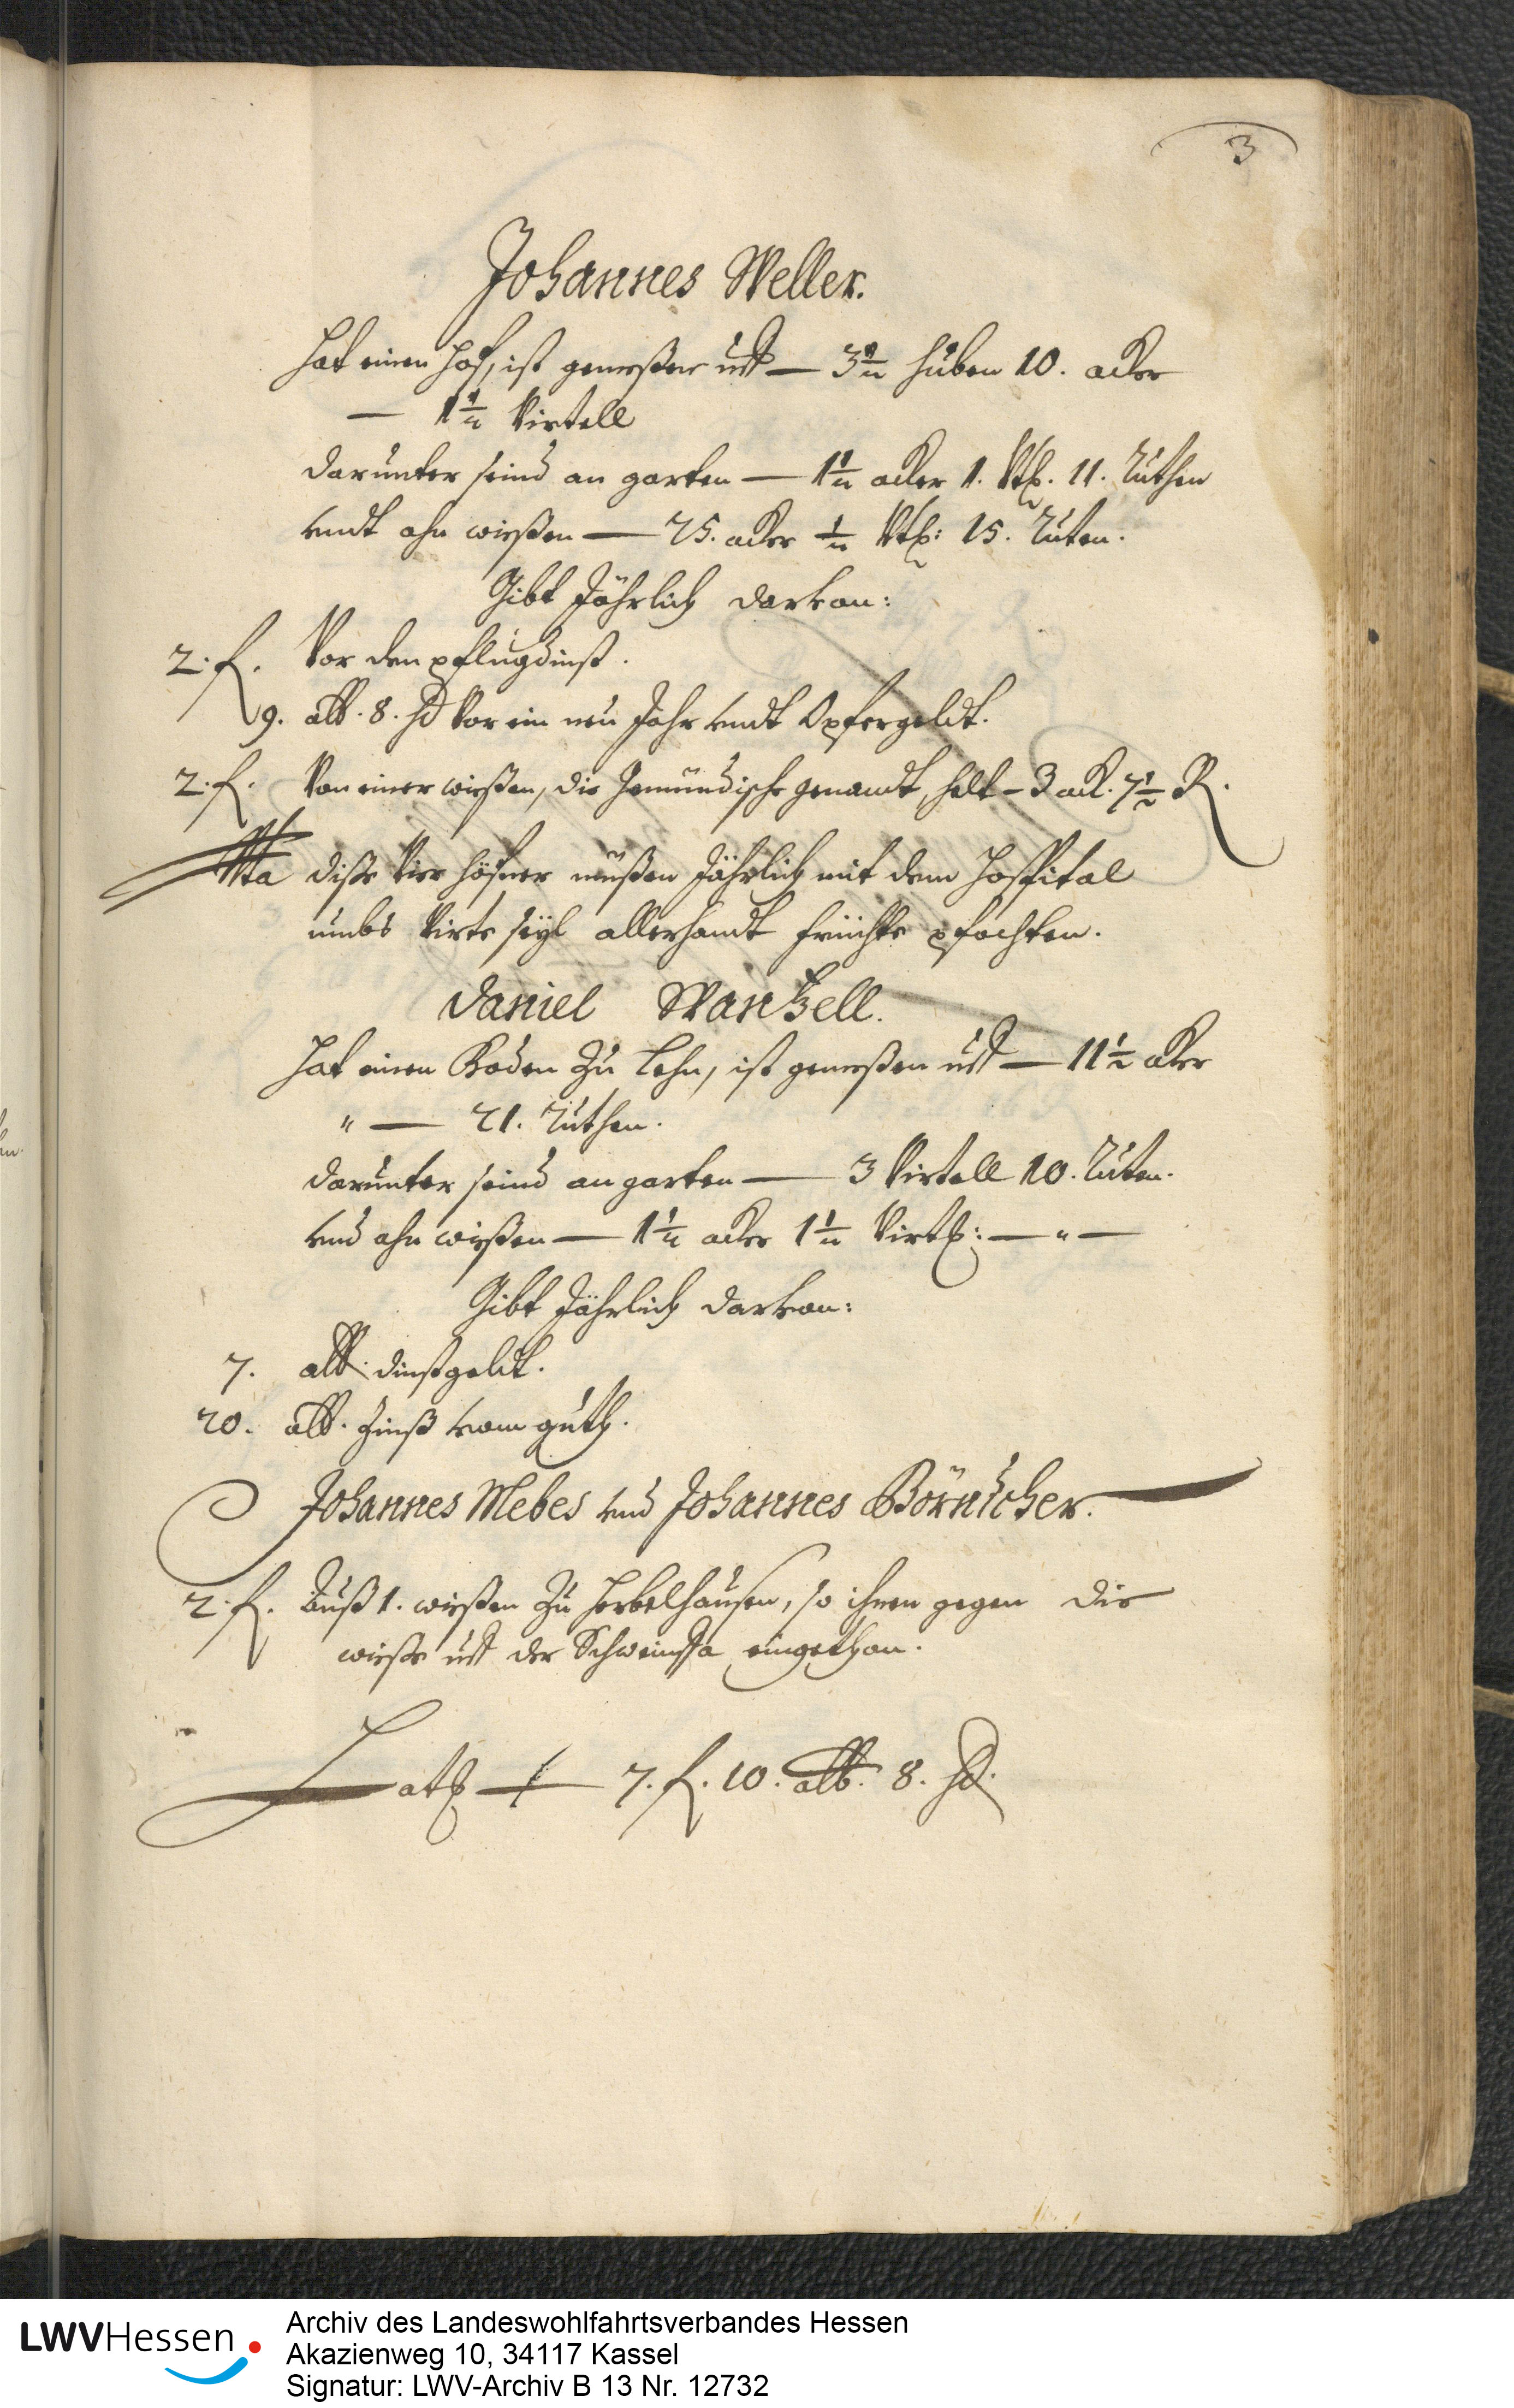 3
Johannes Weller.
Hat einen Hof, ist gemeßen uff — 3½ Huben 10. acker
— 1½ Virtell
darunter seind an garten — 1½ acker 1. Vtl. 11. Ruthen
undt ahn wießen — 25. acker ½ Vtl: 15. Ruten.
Gibt Jährlich darvon:
2. fl. Vor den pflugdinst.
9. alb. 8. hl Vor ein neu Jahr undt Opfergeldt.
2. fl. Von einer wießen, die Gemündische genandt, helt – 3 ack. 7½ R.
Nta diße Vier höfener müßen Jährlich mit dem Hospital
umbs Virte theyl allerhandt früchte pfachten.
Daniel Wanzell.
Hat einen Koden zu Lehn, ist gemeßen uff — 11½ aker
" — 21. Ruthen.
darunter seind an garten — 3 Virtell 10. Ruten.
und ahn wießen — 1½ acker 1½ Virtl: — " —
Gibt Jährlich darvon:
7. alb. dinstgeldt.
20. alb. Zinß vom guth.
Johannes Mebes und Johannes Börnicher.
2. fl. Auß 1. wießen zu Herbelhausen, so ihnen gegen die
wieße uff der Schweinssa eingethan.
Lat — 7. fl. 10. alb. 8. hl.
LWVHessen
Archiv des Landeswohlfahrtsverbandes Hessen
Akazienweg 10, 34117 Kassel
Signatur: LWV-Archiv B 13 Nr. 12732